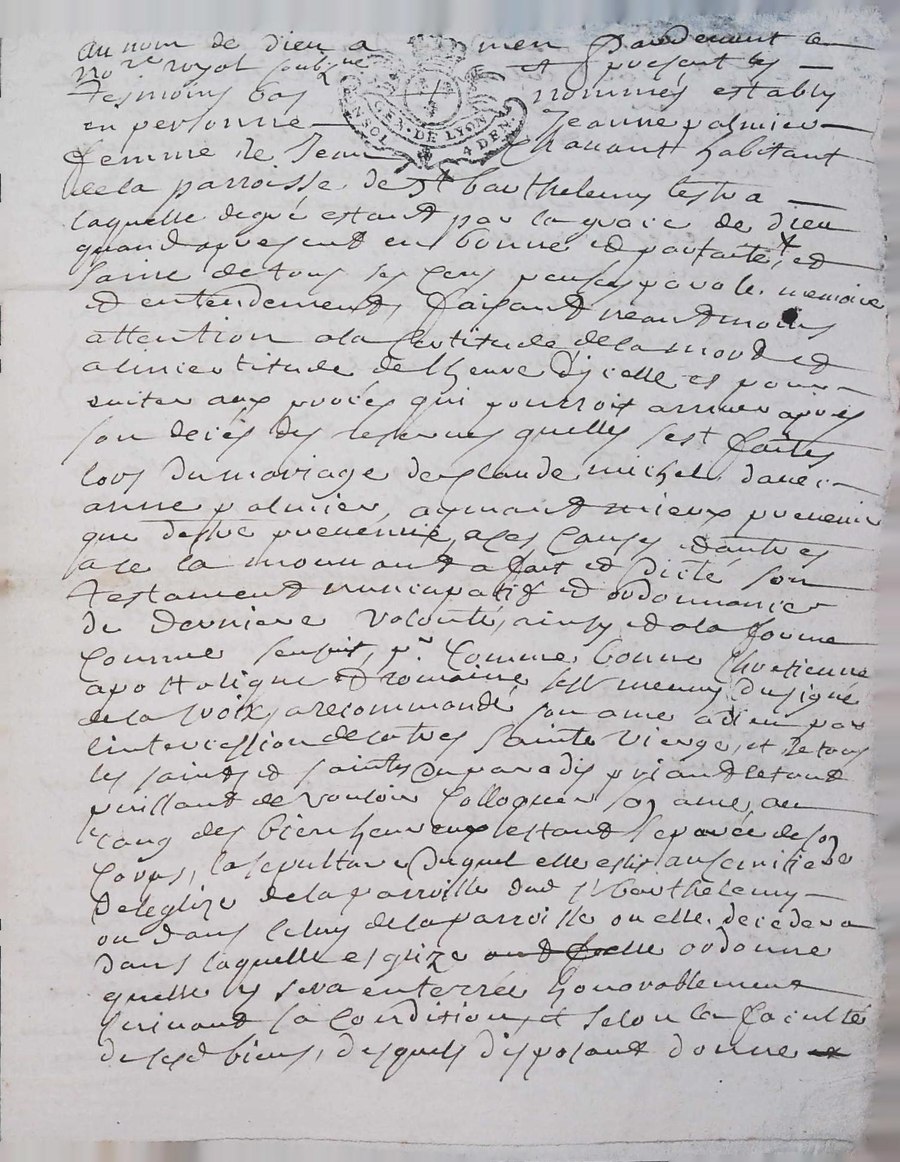 au nom de dieu amen pardevant le
no.re royal soubzigné et present les
tesmoins bas nommés establÿ
en personne Jeanne palmier
femme de Jean Chavant habitant
de la parroisse de St barthelemy lestra
laquelle de gré estant par la grace de dieu
quand apresent en bonne et parfaite et
saine de tous ses cens parole memoire
et entendement, faisant neantmoins
attention a la certitude de la mort et
a lincertitude de lheure dycelle et pour
eviter aux proces qui pourroit arriver apres
son deces des reserves quelles sest faites
lors du mariage de Claude michel avec
anne palmier, aymant mieux prevenir
que destre prevenue, a ces causes et autres
a ce la mouvant a fait et dicté son
testament nuncupatif et ordonnance
de derniere volonté, ainsy et a la forme
comme sensuit, p.r Comme bonne Chretienne
apostolique et romaine sest munie du signe
de la Croix, a recommandé son ame a dieu par
lintercession de la tres Sainte Vierge, et de tous
les saints et saintes du paradis priant le tout
puissant de vouloir Colloquer son ame au
rang des bienheureux estant separée de son
Corps, la sepulture duquel elle eslit au cimitiere
de leglize de la parroisse dud St barthelemy
ou dans celuy de la parroisse ou elle decedera
dans laquelle esglize elle ordonne
quelle y sera enterrée honorablement
suivant sa Condition, et selon la faculté
de sesd biens, desquels disposant donne
GEN. DE LYON
UN SOL 4 DEN.